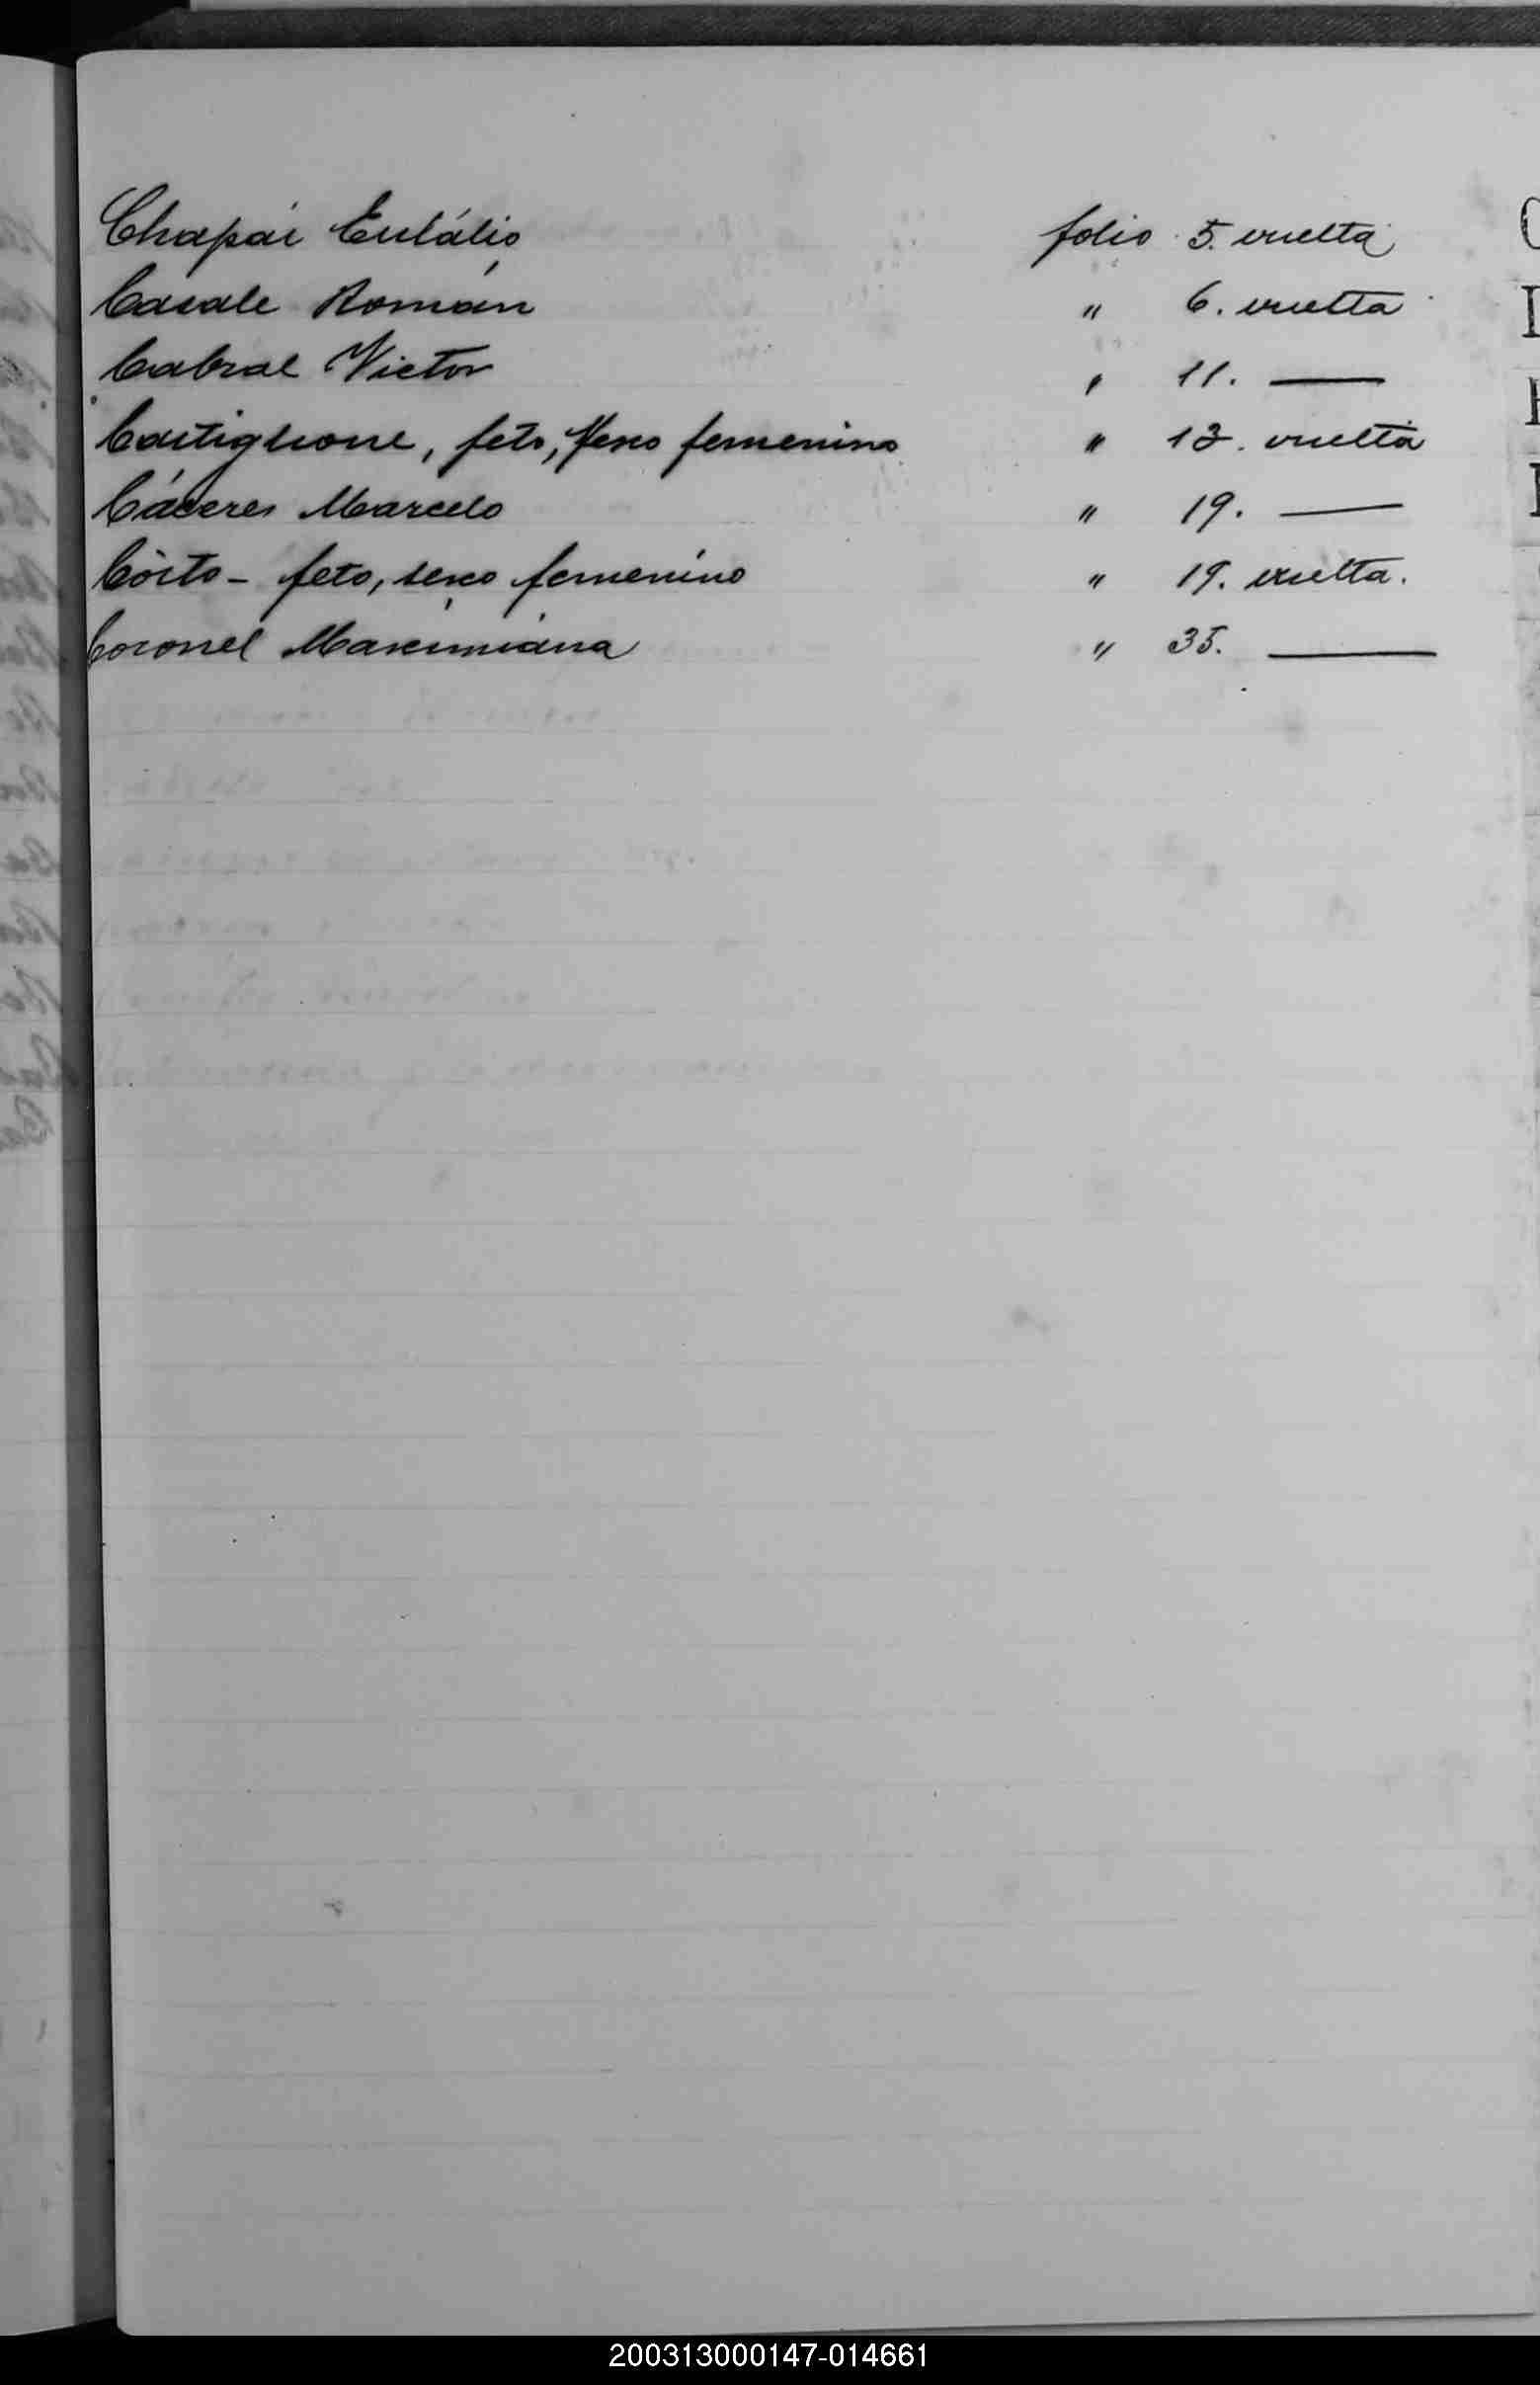 Chapai Eulálio folio 5. vuelta
Casale Román " 6. vuelta
Cabral Victor " 11. —
Castiglione, feto, sexo femenino " 13. vuelta
Cáceres Marcelo " 19. —
feto, sexo femenino " 19. vuelta.
Coronel Maximiana " 35. —
200313000147-014661